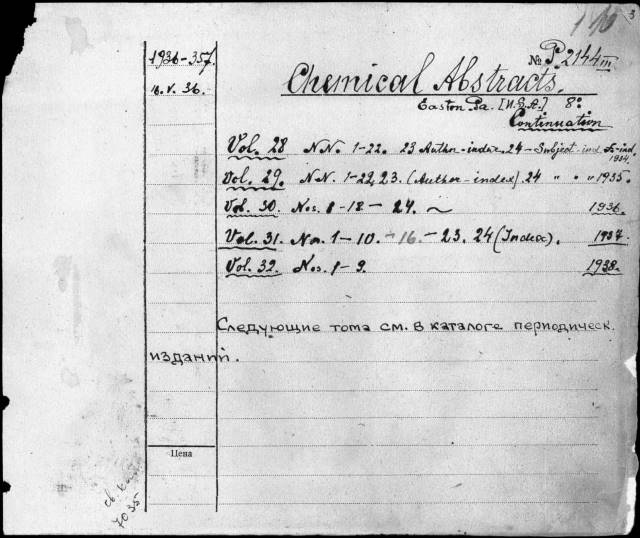 3
1936-357.
№ P.2144III
Chemical Abstracts.
16.V.36.
Easton Pa. [U.S.A.] 8°
Continuation
Vol. 28 NN. 1-22. 23 Author-index, 24 - Subject-ind. 1934.
Vol. 29. NN. 1-22, 23. (Author-index) 24 " " " 1935.
Vol. 30. Nos. 1-18- 24. 1936.
Vol. 31. Nos. 1-10. -16. -23. 24 (Index). 1937.
Vol. 32. Nos. 1-9. 1938.
Следующие тома см. в каталоге периодическ.
изданий.
Цена
св. кат
7035